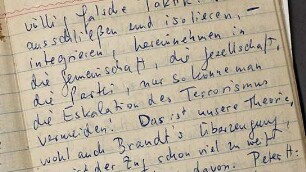 völlig falsche Taktik:
ausschließen und isolieren, –
integrieren, hereinnehmen in
die Gemeinschaft, die Gesellschaft,
die Partei, nur so könne man
die Eskalation des Terrorismus
vermeiden. Das ist unsere Theorie,
wohl auch Brandt's Überzeugung,
ist der Zug schon viel zu weit
davon. Peter H: